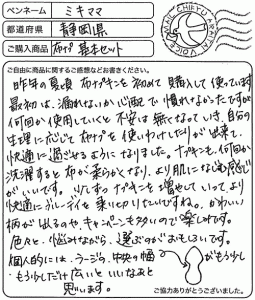 ペンネーム ミキママ
都道府県 静岡県
ご購入商品 布ナプ 基本セット
MAIN CHIEKU ARIGATAI VOICE
ご自由に商品に関するご感想などお書きください。
昨年の夏頃 布ナプキンを初めて購入して使っています
最初は、漏れないか心配で慣れなかったですが
何回か使用していくと不安は無くなっていき、自分の
生理に応じて布ナプを使いわけしたりが出来て、
快適に過ごせるようになりました。ナプキンも、何回か
洗濯すると布が柔らかくなり、より肌になじむ感じ
がいいです。少しずつナプキンを増やしていって、より
快適にブルーデイを乗りきりたいですね。かわいい
柄が出るのや、キャンペーンも多いので楽しみです。
色々と、悩みながら、選ぶのがおもしろいです。
個人的には、うーごろ、中央の幅 がもう少し
もう少しだけ広いといいなぁと
思います。
ご協力ありがとうございました。